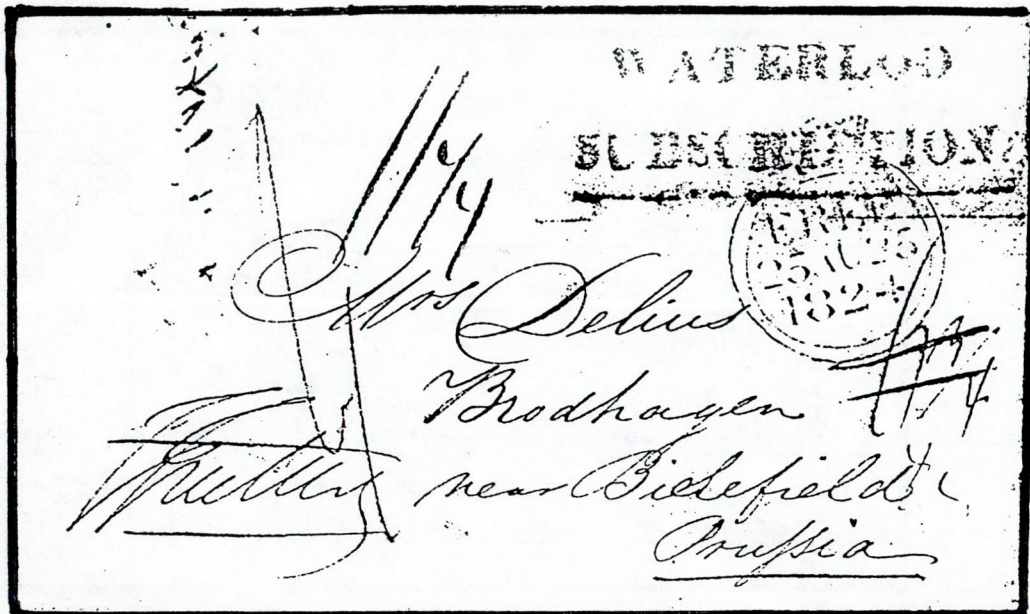 WATERLOO
SUBSCRIPTION.
FREE
25 AU 25
1824
11/4
Mrs Delius
Brodhagen
near Bielefield
Prussia